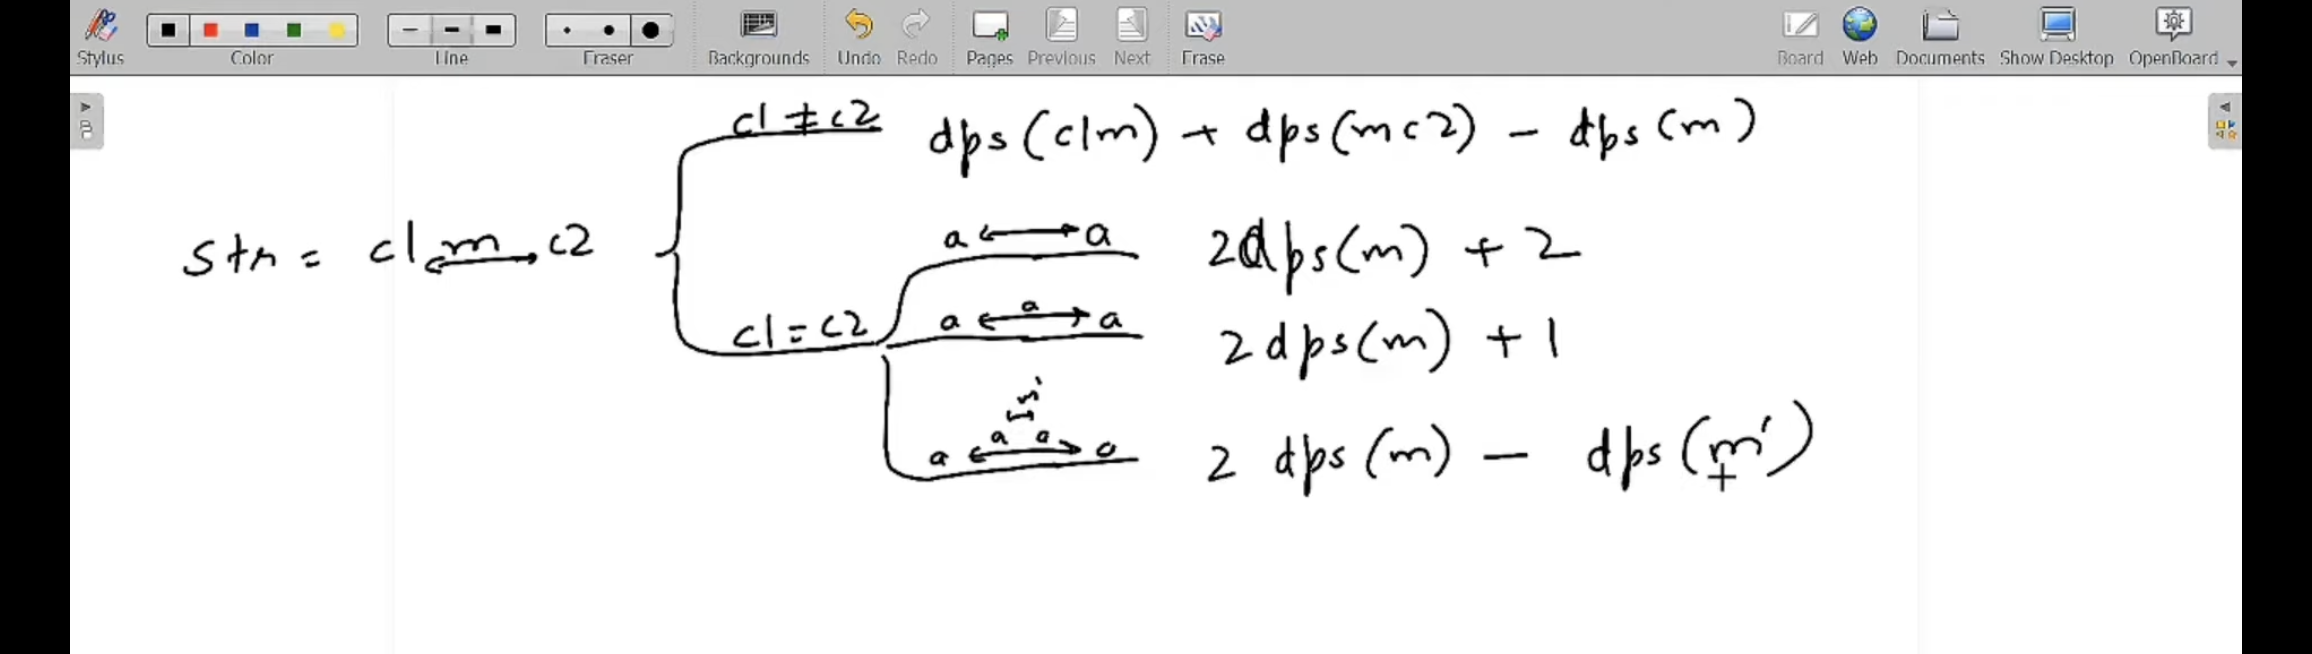 Stylus Color Line Eraser Backgrounds Undo Redo Pages Previous Next Erase Board Web Documents Show Desktop OpenBoard
c1 ≠ c2 dps(c1m) + dps(mc2) - dps(m)
str = c1 m c2
a ↔ a 2dps(m) + 2
c1 = c2
a a a 2dps(m) + 1
m'
a a a a 2 dps(m) - dps(m')